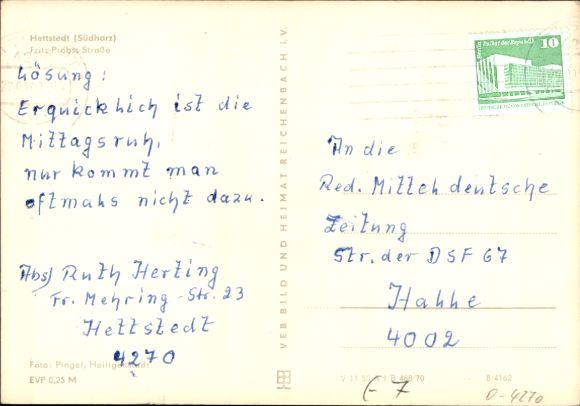 Hettstedt (Südharz)
Fritz-Probst-Straße
Lösung:
Erquicklich ist die
Mittagsruh,
nur kommt man
oftmals nicht dazu.
Abs) Ruth Herting
Fr. Mehring-Str. 23
Hettstedt
4270
Foto: Pingel, Heiligenstadt
EVP 0,25 M
VEB BILD UND HEIMAT REICHENBACH I. V.
Berlin, Palast der Republik
10
An die
Red. Mitteldeutsche
Zeitung
Str. der DSF 67
Halle
4002
B/4162
(-7
O-4270